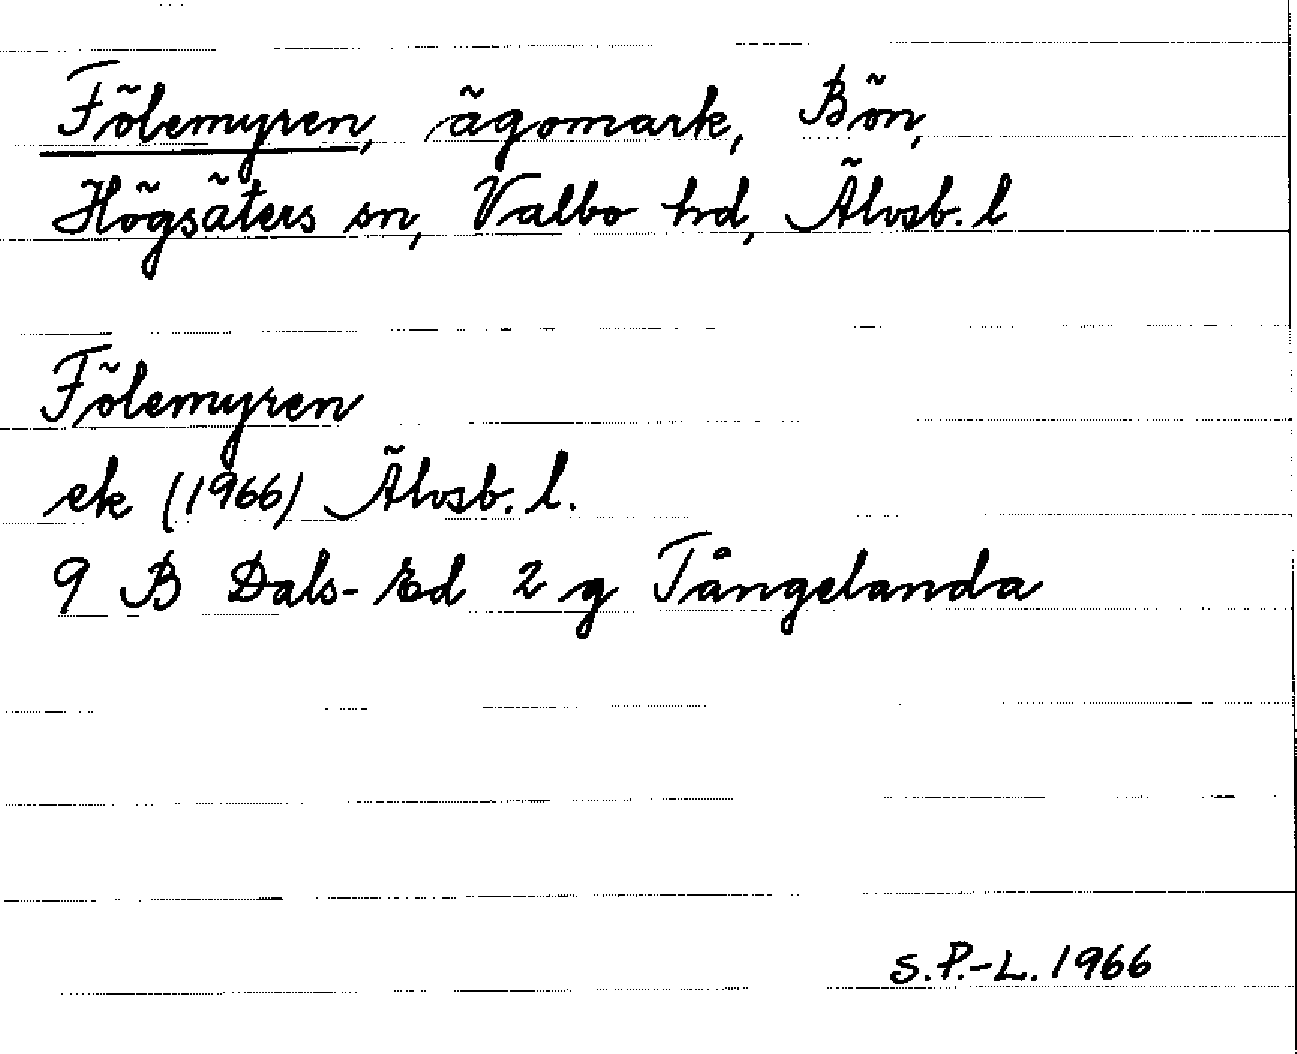 Fölemyren, ägomark, Bön,
Högsäters sn, Valbo hd, Älvsb. l
Fölemyren
ek (1966) Älvsb. l.
9 B Dals-Ed 2 g Tångelanda
S.P.-L. 1966